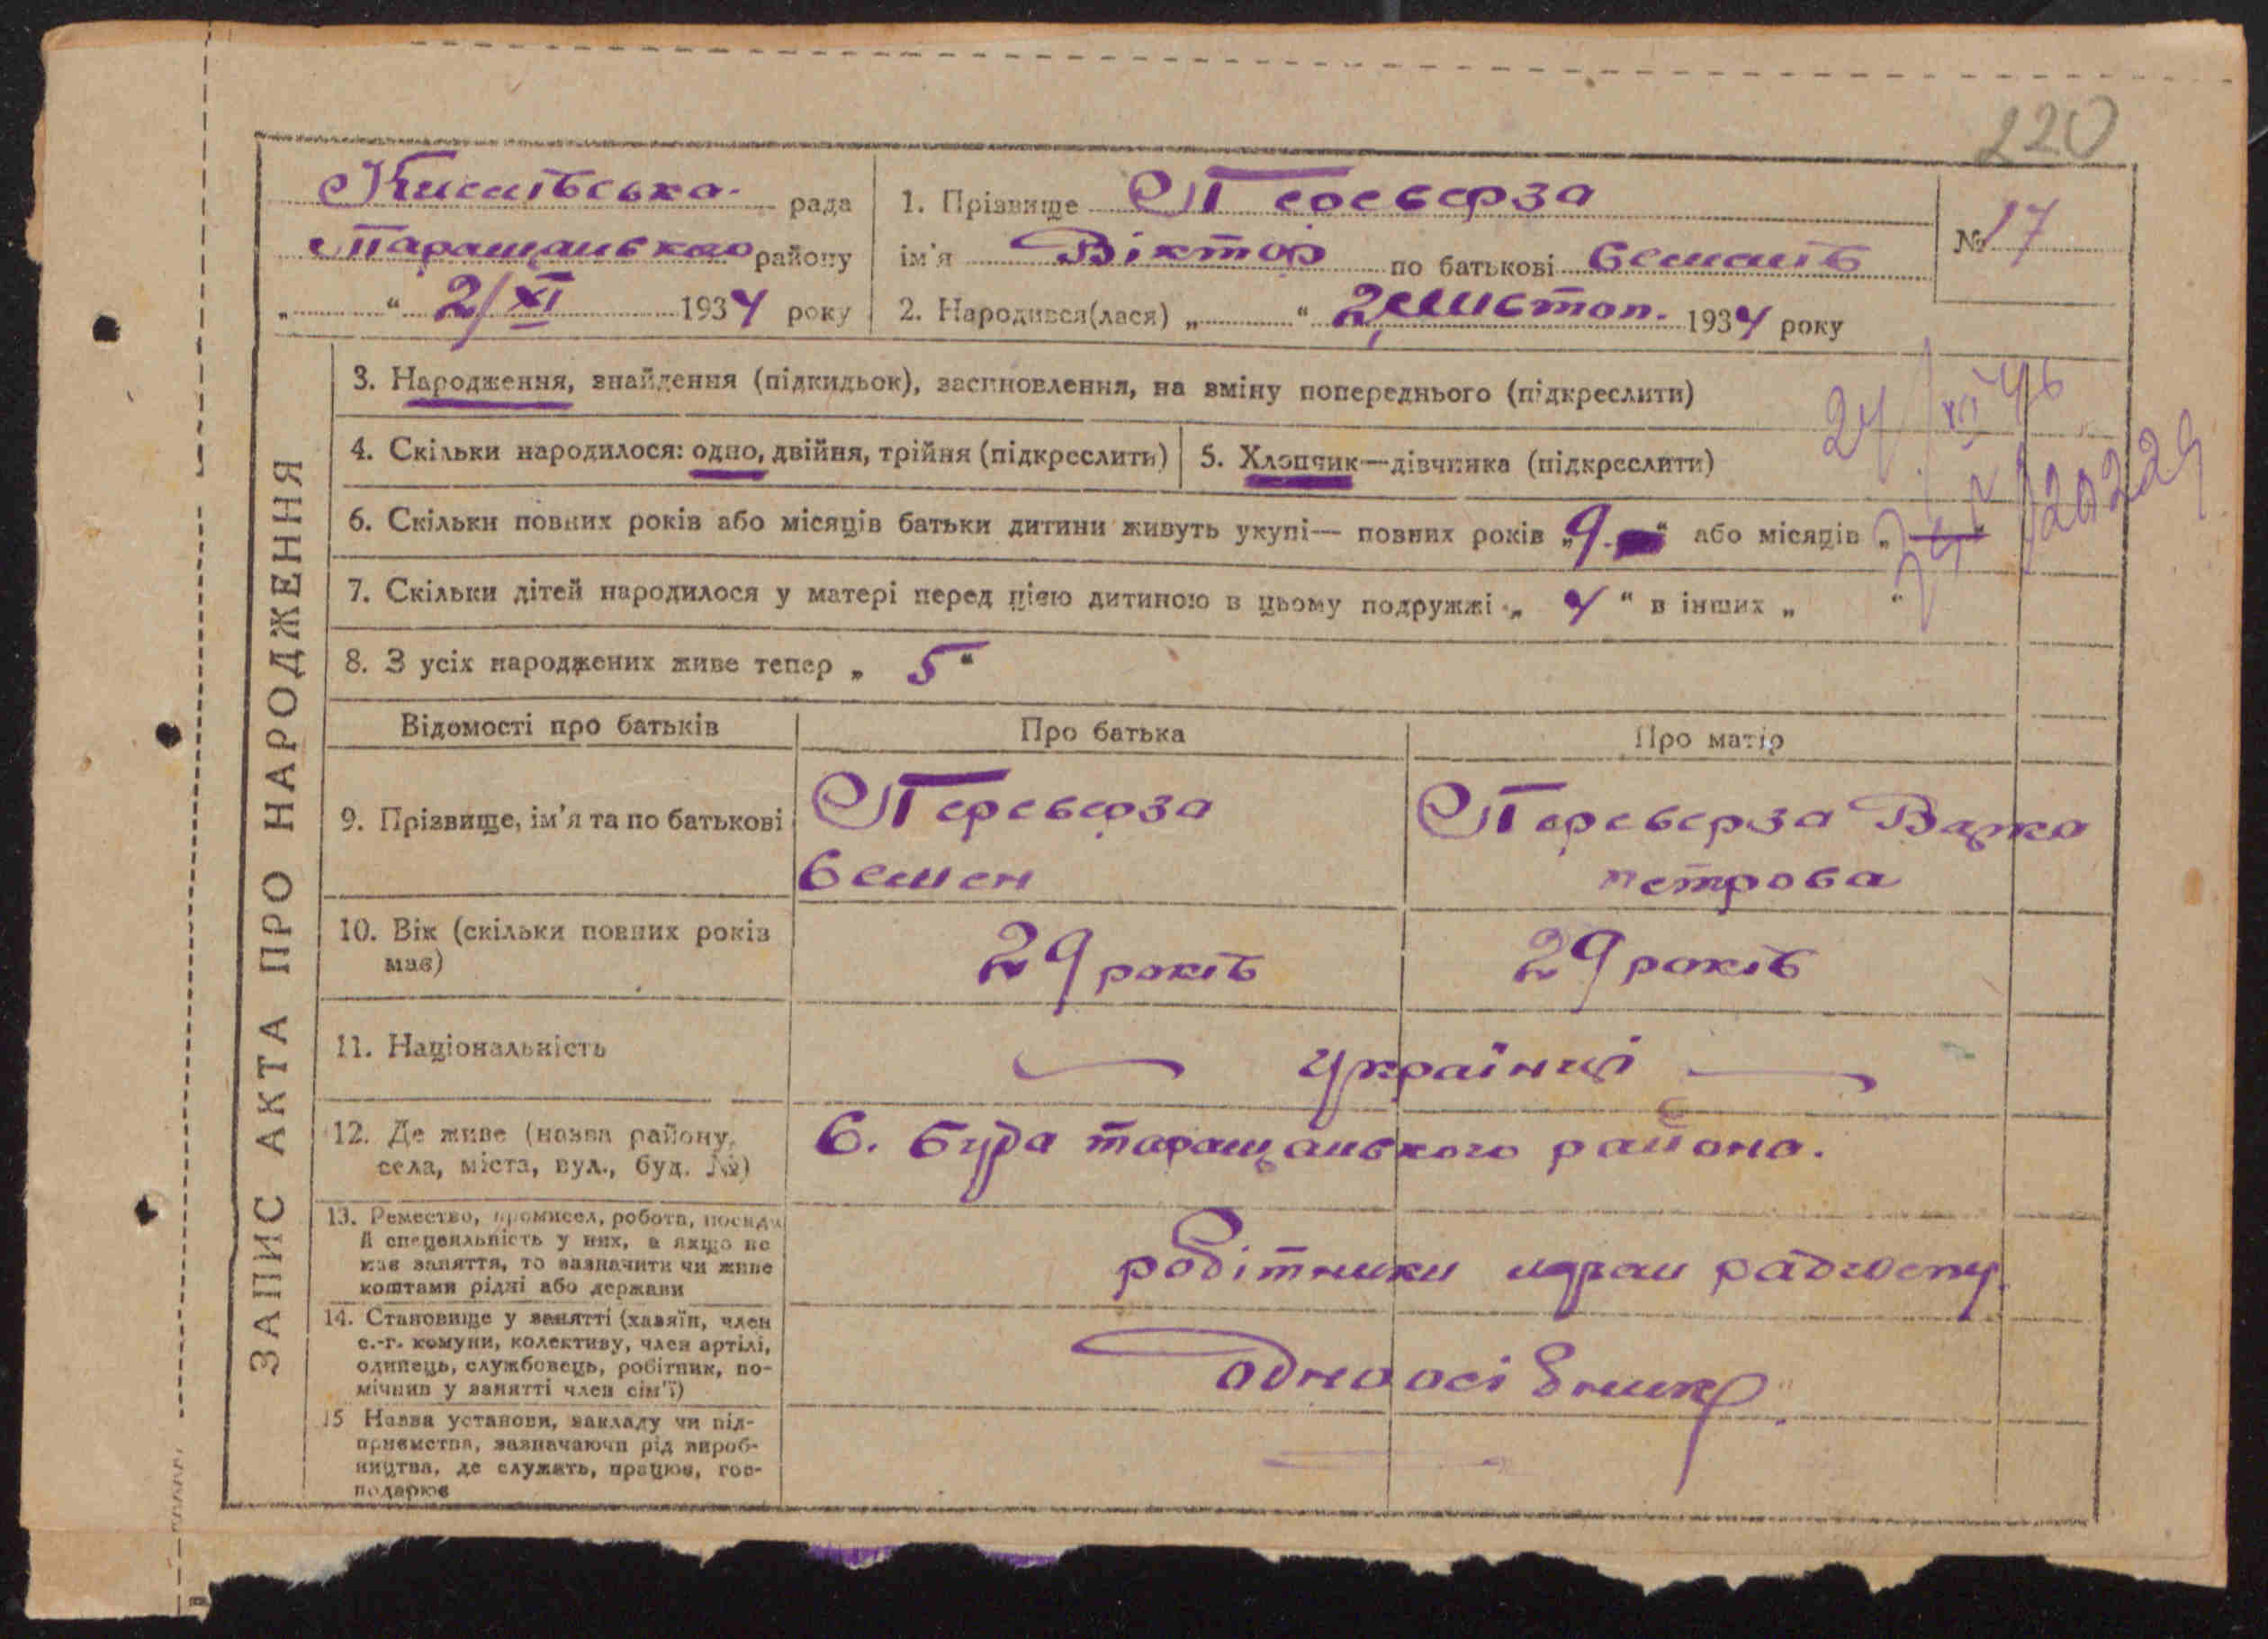 220
Кислівська рада
Таращанського району
„ “ 2/XI 1934 року
1. Прізвище Переверза
ім'я Віктор по батькові Семенів
2. Народився(лася) „ “ 2 листоп. 1934 року
№ 17
ЗАПИС АКТА ПРО НАРОДЖЕННЯ
3. Народження, знайдення (підкидьок), заспновлення, на зміну попереднього (підкреслити)
4. Скільки народилося: одно, двійня, трійня (підкреслить)
5. Хлопчик—дівчинка (підкреслити)
24/XII 46
6. Скільки повних років або місяців батьки дитини живуть укупі— повних років „9“ або місяців „—“
7. Скільки дітей народилося у матері перед цією дитиною в цьому подружжі „ 4 “ в інших „ “
8. З усіх народжених живе тепер „ 5 “
Відомості про батьків
Про батька
Про матір
9. Прізвище, ім'я та по батькові
Переверза
Семен
Переверза Варка
петрова
10. Вік (скільки повних років
має)
29 років
29 років
11. Національність
українці
12. Де живе (назва району,
села, міста, вул., буд. №)
С. Буда таращанського района.
13. Ремество, промисел, робота, посада
й спеціяльність у них, а якщо не
має заняття, то зазначити чи живе
коштами рідні або держави
робітники радгоспу.
14. Становище у занятті (хазяїн, член
с.-г. комуни, колективу, член артілі,
одинець, службовець, робітник, по-
мічний у занятті член сім'ї)
одноосібник
15 Назва установи, закладу чи під-
приємства, зазначаючи рід вироб-
ництва, де служить, працює, гос-
подарює